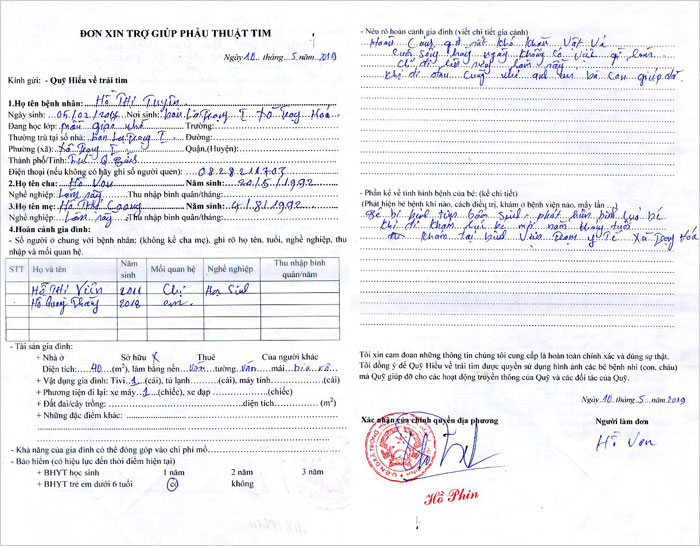 ĐƠN XIN TRỢ GIÚP PHẪU THUẬT TIM
Ngày 10 tháng 5 năm 2019
Kính gửi: - Quỹ Hiểu về trái tim
1.Họ tên bệnh nhân: Hồ Thị Tuyên
Ngày sinh: 05/02/ Nơi sinh: bản I Xã Trọng Hoá
Đang học lớp: mẫu giáo nhỏ Trường:
Thường trú tại số nhà: bản La Trọng I Đường:
Phường (xã): Xã Trọng Quận,(Huyện):
Thành phố/Tỉnh: Tỉnh Q Bình
Điện thoại (nếu không có hãy ghi số người quen): 0828211703
2.Họ tên cha: Hồ Von Năm sinh: 20/5/1992
Nghề nghiệp: Làm rẫy Thu nhập bình quân/tháng:
3.Họ tên mẹ: Hồ Thị Năm sinh: 4/8/1992
Nghề nghiệp: Làm rẫy Thu nhập bình quân/tháng:
4.Hoàn cảnh gia đình:
- Số người ở chung với bệnh nhân: (không kể cha mẹ), ghi rõ họ tên, tuổi, nghề nghiệp, thu
nhập và mối quan hệ.
STT Họ và tên Năm sinh Mối quan hệ Nghề nghiệp Thu nhập bình quân/năm
Hồ Thị Viên 2011 Chị Học Sinh
Hồ Quang 2018 em
- Tài sản gia đình:
+ Nhà ở Sở hữu X Thuê Của người khác
Diện tích: 40 (m²), làm bằng nền ván tường ván mái
+ Vật dụng gia đình: Tivi 1 (cái), tủ lạnh (cái), máy tính (cái)
+ Phương tiện đi lại: xe máy 1 (chiếc), xe đạp (chiếc)
+ Đất đai/cây trồng: diện tích (m²)
+ Những đặc điểm khác:
- Khả năng của gia đình có thể đóng góp vào chi phí mổ
- Bảo hiểm (có hiệu lực đến thời điểm hiện tại)
+ BHYT học sinh 1 năm 2 năm 3 năm
+ BHYT trẻ em dưới 6 tuổi có không
- Nêu rõ hoàn cảnh gia đình (viết chi tiết gia cảnh)
Hoàn Cảnh gđ rất khó khăn Vất Vả
cuộc sống hàng ngày không có việc gì làm
Chỉ đi làm rẫy
khi đi đau cũng nhờ bà con giúp đỡ
- Phần kể về tình hình bệnh của bé: (kể chi tiết)
(Phát hiện bé bệnh khi nào, cách điều trị, khám ở bệnh viện nào, mấy lần
Bé bị bệnh tim bẩm sinh phát hiện bệnh lúc bé
khi đi khám lúc bé một năm tuổi
khám tại bệnh Viện Trạm y Tế Xã Trọng Hoá
Tôi xin cam đoan những thông tin chúng tôi cung cấp là hoàn toàn chính xác và đúng sự thật.
Tôi đồng ý để Quỹ Hiểu về trái tim được quyền sử dụng hình ảnh các bé bệnh nhi (con, cháu)
mà Quỹ giúp đỡ cho các hoạt động truyền thông của Quỹ và các đối tác của Quỹ.
Ngày 10 tháng 5 năm 2019
Xác nhận của chính quyền địa phương
Người làm đơn
Hồ Von
Hồ Phin